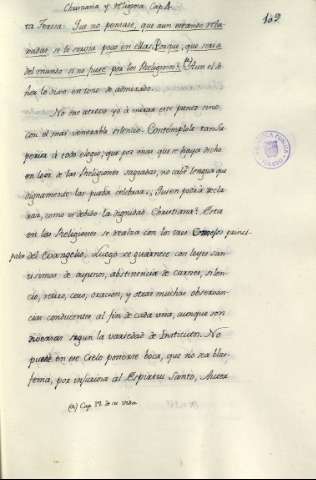 Christiana y Religiosa Cap. 4.
102
ra Teresa. Que no pensase, que aun estando rela-
xadas se le servia poco en ellas. Porque, que seria
del mundo si no fuese por los Religiosos? (a) Aun el de-
no me atrevo yo á mirar este punto sino
con el mas venerable silencio. Contemplole
superior á todo elogio; que por mas que se haya dicho
en loor de las Religiones sagradas, no cabe lengua que
dignamente las pueda celebrar. Quien podrá decla-
rar, como es debido la dignidad Christiana? Esta
en las Religiones se realza con los tres Consejos princi-
pales del Evangelio. Luego se guarnece con leyes san-
tisimas de ayunos, abstinencia de carnes, silen-
cio, retiro, coro, oracion, y otras muchas observan-
cias conducentes al fin de cada una, aunque son
diversas segun la variedad de Institutos. No
puede en este Cielo ponerse boca, que no sea blas-
fema, por injuriosa al Espiritu Santo, Autor
(a) Cap. 32 de su vida